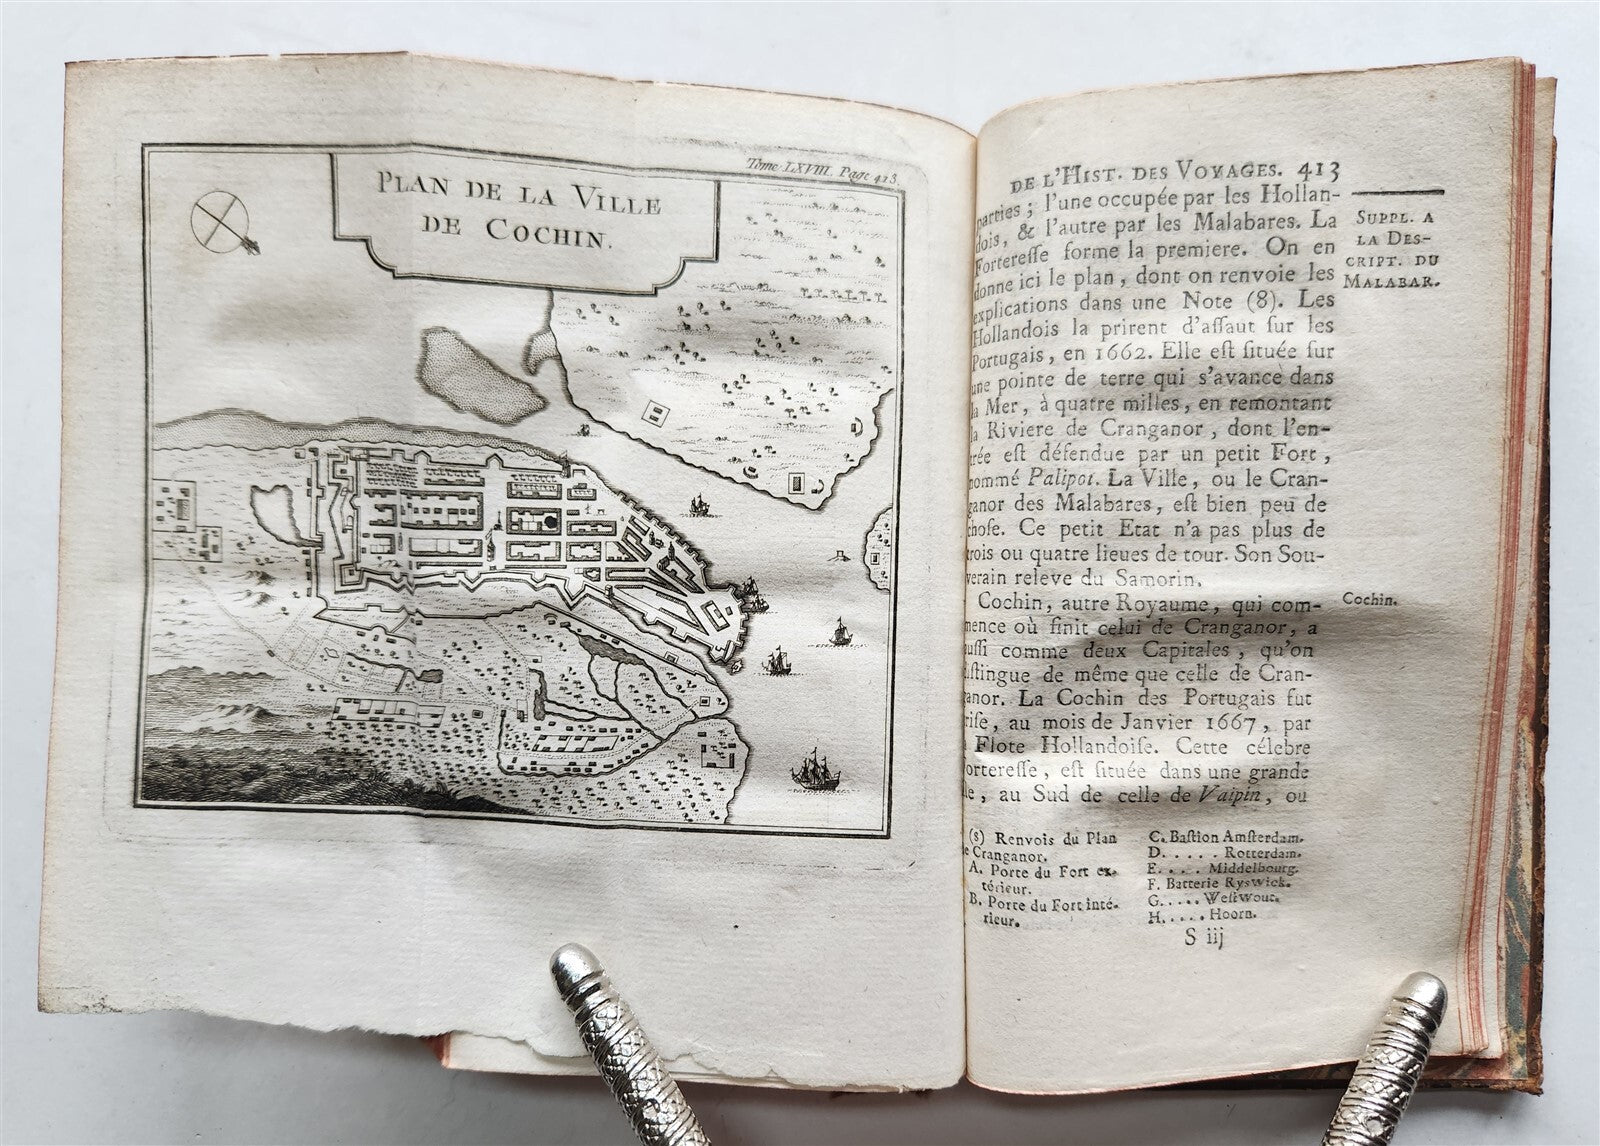 Tome LXVIII. Page 413.
PLAN DE LA VILLE
DE COCHIN.
DE L'HIST. DES VOYAGES. 413
parties; l'une occupée par les Hollan-
dois, & l'autre par les Malabares. La
Forteresse forme la premiere. On en
donne ici le plan, dont on renvoie les
explications dans une Note (8). Les
Hollandois la prirent d'assaut sur les
Portugais, en 1662. Elle est située sur
une pointe de terre qui s'avance dans
la Mer, à quatre milles, en remontant
la Riviere de Cranganor, dont l'en-
trée est défendue par un petit Fort,
nommé Palipot. La Ville, ou le Cran-
ganor des Malabares, est bien peu de
chose. Ce petit Etat n'a pas plus de
trois ou quatre lieues de tour. Son Sou-
verain releve du Samorin.
Cochin, autre Royaume, qui com-
mence où finit celui de Cranganor, a
aussi comme deux Capitales, qu'on
distingue de même que celle de Cran-
ganor. La Cochin des Portugais fut
prise, au mois de Janvier 1667, par
Flote Hollandoise. Cette célebre
Forteresse, est située dans une grande
Isle, au Sud de celle de Vaipin, ou
SUPPL. A
LA DES-
CRIPT. DU
MALABAR.
Cochin.
(8) Renvois du Plan
de Cranganor.
A. Porte du Fort ex-
térieur.
B. Porte du Fort inté-
rieur.
C. Bastion Amsterdam.
D. . . . . . Rotterdam.
E. . . . . Middelbourg.
F. Batterie Ryswick.
G. . . . . Westwout.
H. . . . . Hoorn.
S iij